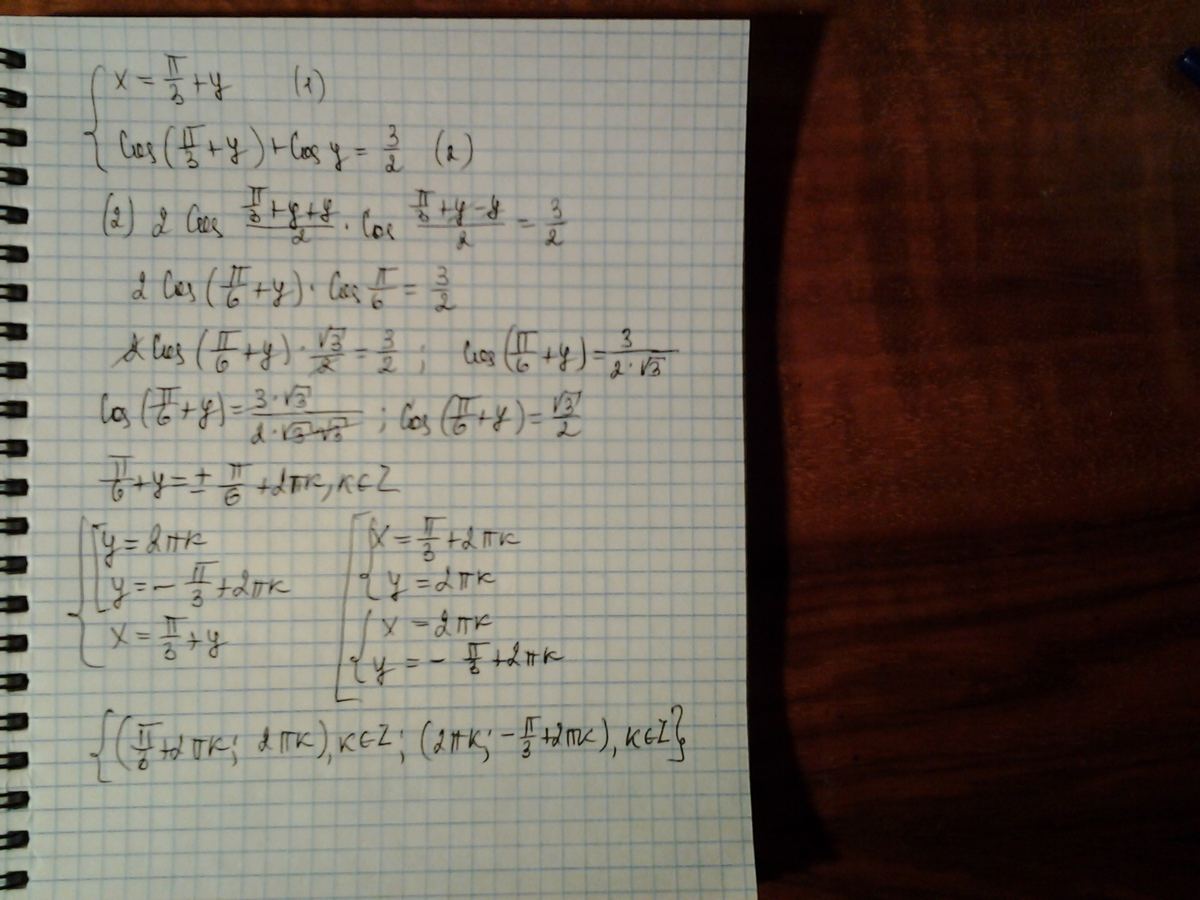 { x = π/3 + y (1)
{ Cos(π/3 + y) + Cos y = 3/2 (2)
(2) 2 Cos (π/3 + y + y)/2 · Cos (π/3 + y − y)/2 = 3/2
2 Cos(π/6 + y) · Cos π/6 = 3/2
2 Cos(π/6 + y) · √3/2 = 3/2 ; Cos(π/6 + y) = 3/(2·√3)
Cos(π/6 + y) = 3·√3/(2·√3·√3) ; Cos(π/6 + y) = √3/2
π/6 + y = ± π/6 + 2πk, k∈Z
{ [ y = 2πk
y = − π/3 + 2πk
x = π/3 + y
[ { x = π/3 + 2πk
y = 2πk
{ x = 2πk
y = − π/3 + 2πk
{(π/3 + 2πk; 2πk), k∈Z; (2πk; − π/3 + 2πk), k∈Z}